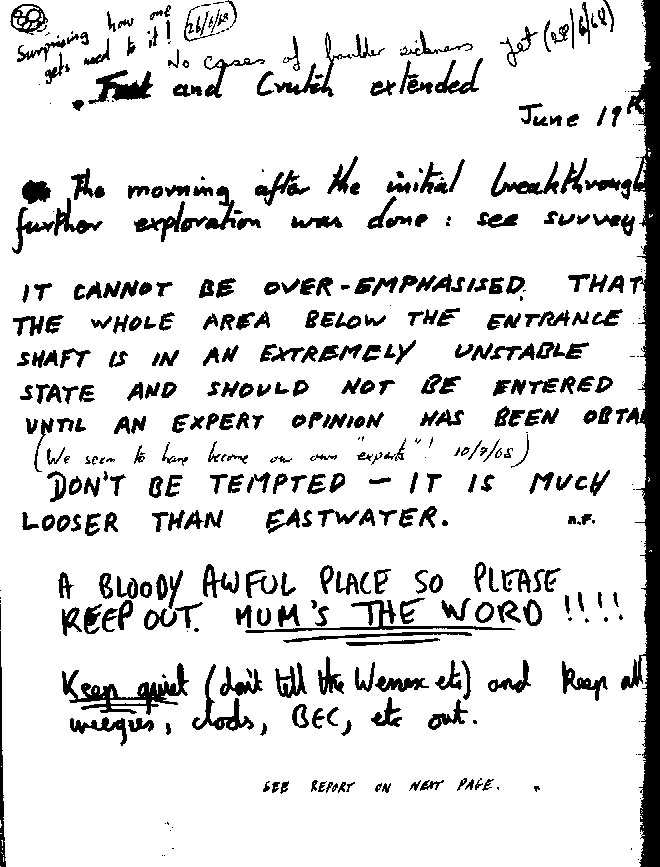 Surprising how one
gets used to it! 26/6/68
No cases of boulder sickness yet (28/6/68)
and Crutch extended
June 19th
The morning after the initial breakthrough
further exploration was done : see survey
IT CANNOT BE OVER-EMPHASISED THAT
THE WHOLE AREA BELOW THE ENTRANCE
SHAFT IS IN AN EXTREMELY UNSTABLE
STATE AND SHOULD NOT BE ENTERED
UNTIL AN EXPERT OPINION HAS BEEN OBTA
(We seem to have become our own "experts"! 10/7/68)
DON'T BE TEMPTED — IT IS MUCH
LOOSER THAN EASTWATER. A.F.
A BLOODY AWFUL PLACE SO PLEASE
KEEP OUT. MUM'S THE WORD !!!!
Keep quiet (don't tell the Wessex etc) and keep all
weegies, clods, BEC, etc out.
SEE REPORT ON NEXT PAGE.